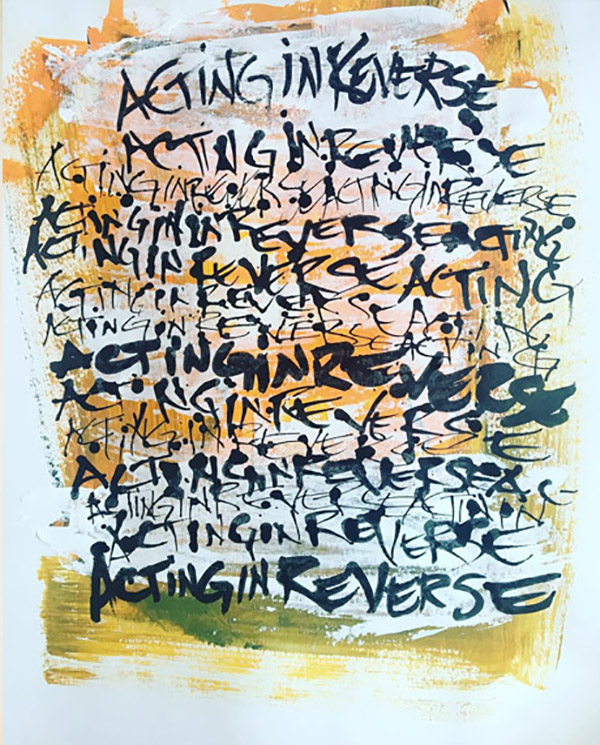 ACTING iN REVERSE
ACTING iN REVERSE
ACTING IN REVERSE ACTING IN REVERSE
ACTING IN REVERSE ACTING
ACTING IN REVERSE ACTING
ACTING IN REVERSE ACTING
ACTING IN REVERSE ACTING
ACTiNG iN REVERSE
ACTING IN REVERSE
ACTING IN REVERSE
ACTING IN REVERSE
ACTING IN REVERSE ACTING IN
ACTING IN REVERSE
ACTING IN REVERSE